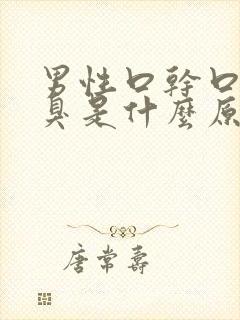 男性口幹口
臭是什麼原
唐常壽